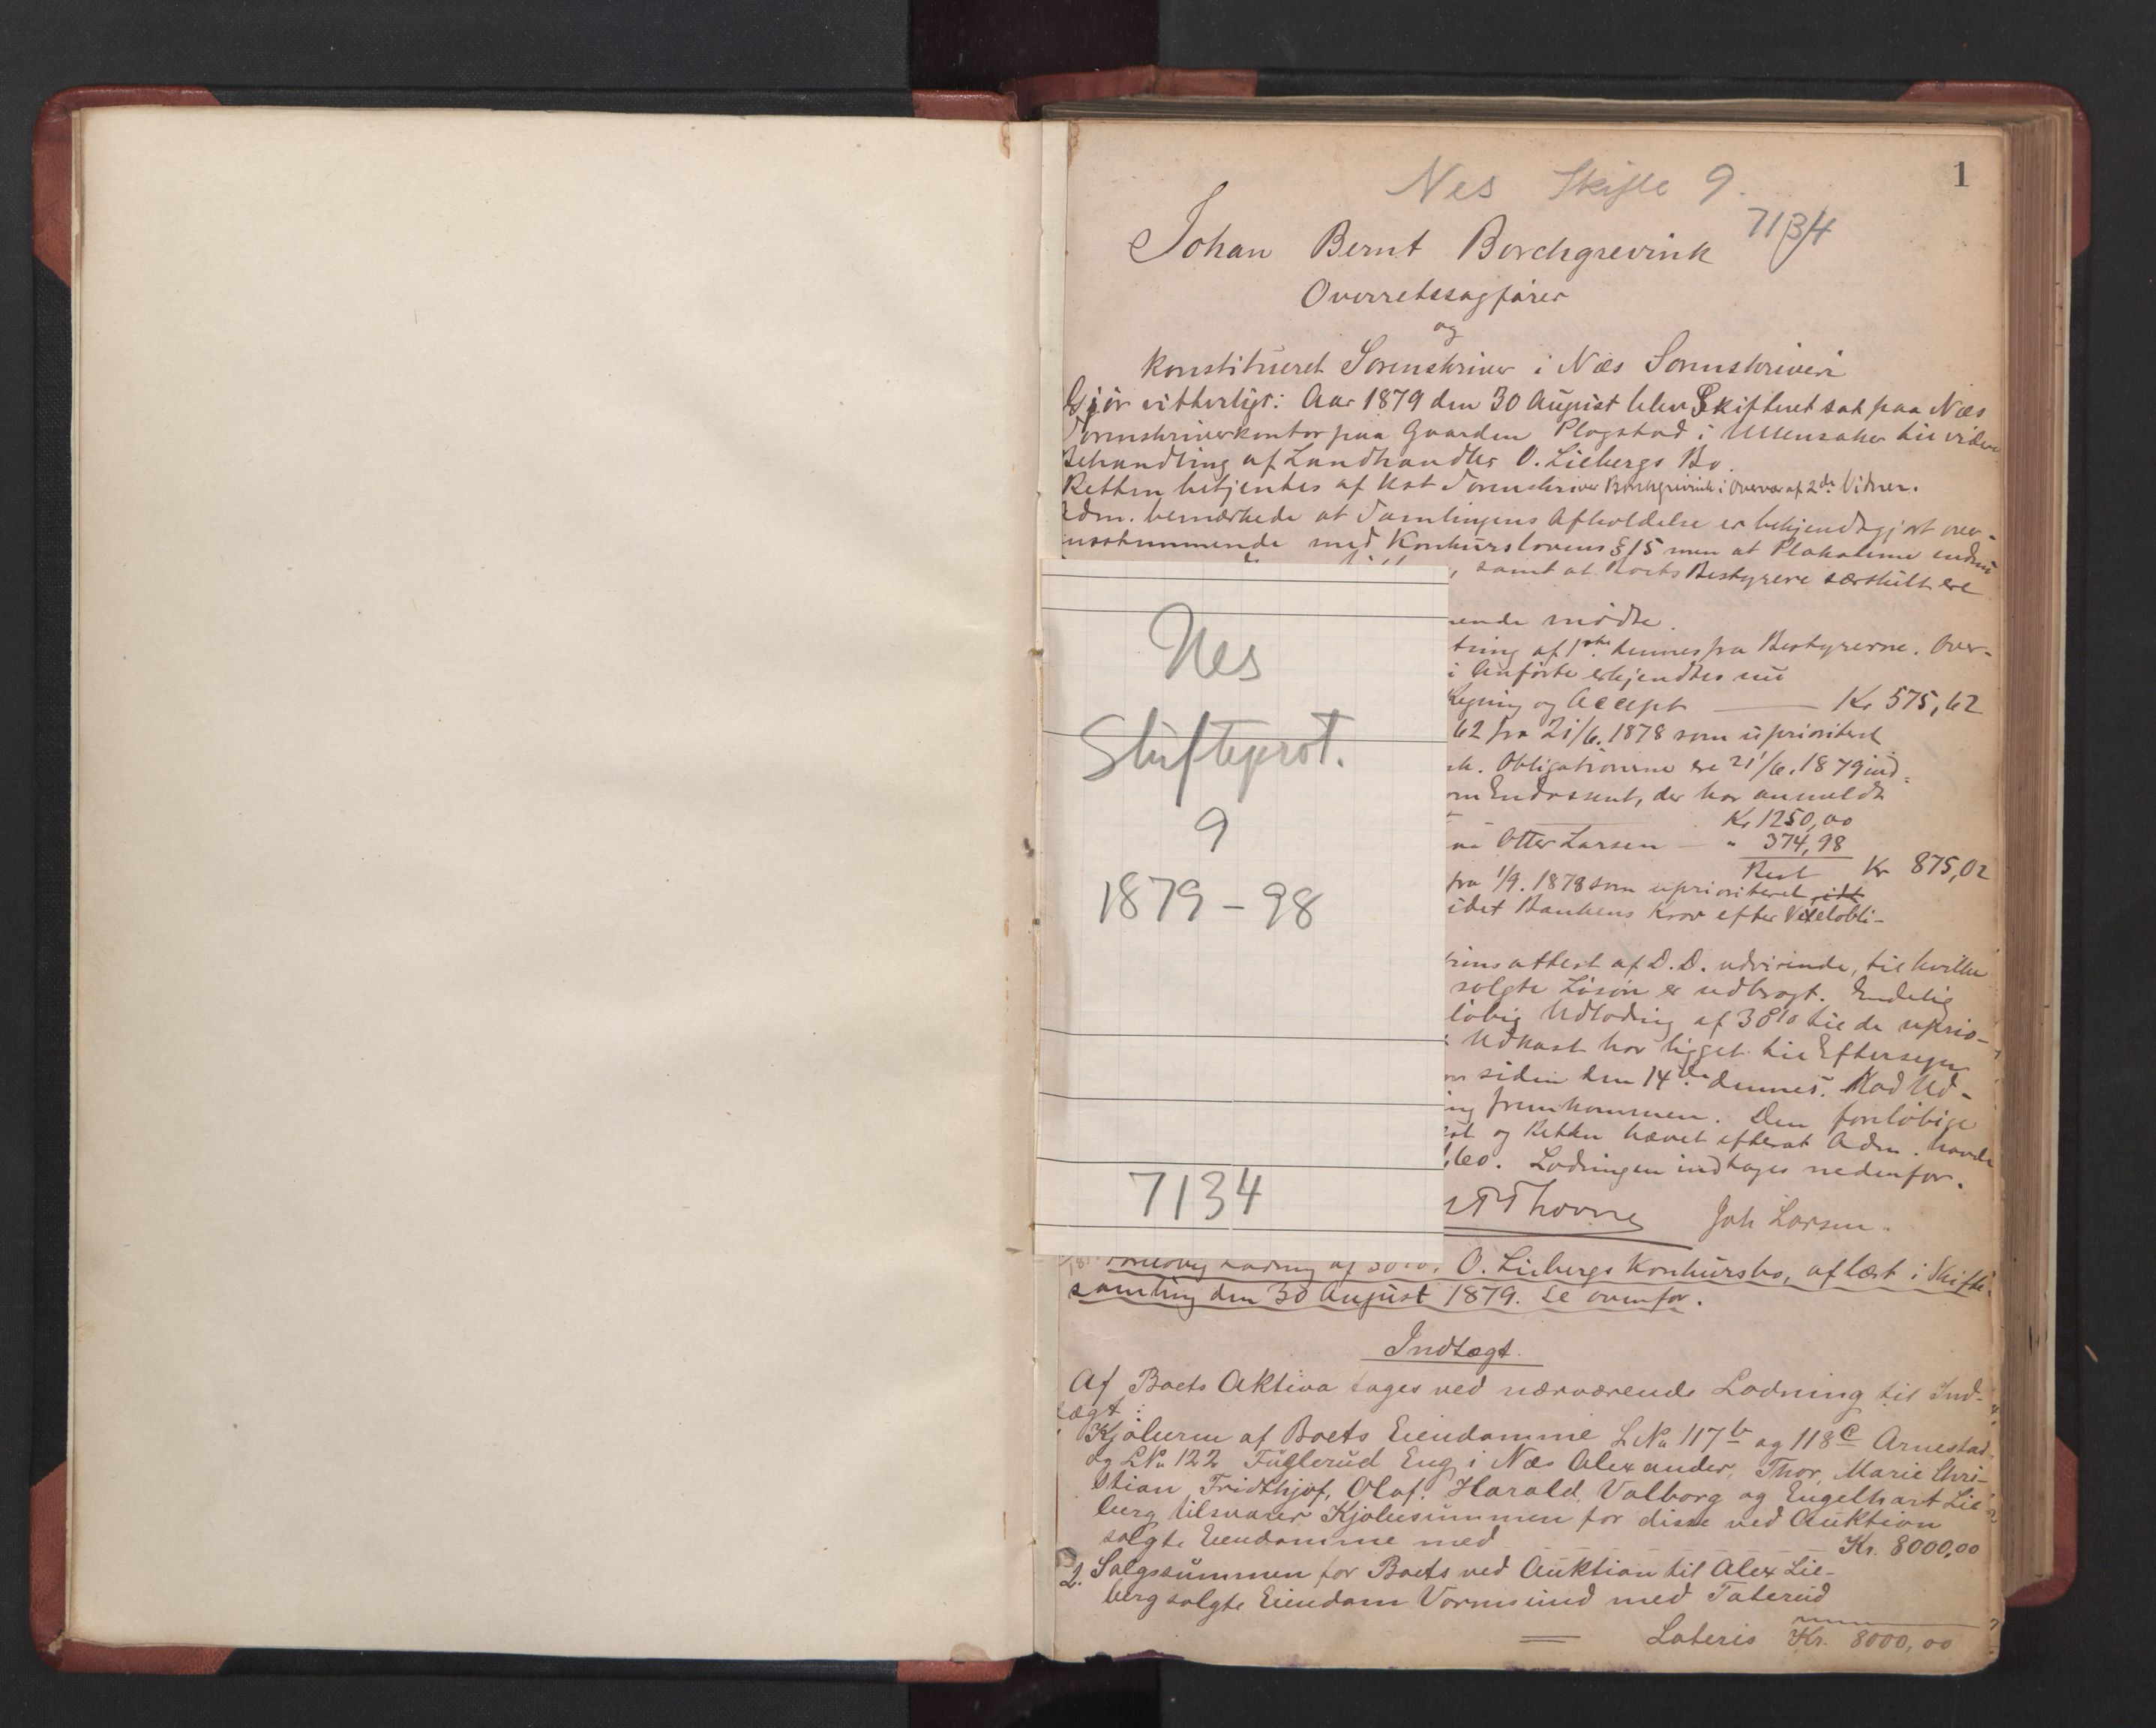 1
Nes Skifte 9.
7134
Johan Bernt Borchgrevink
Overretssagfører
og
konstitueret Sorenskriver i Næs Sorenskriveri
Gjør vitterligt: Aar 1879 den 30 August blev Skifteret sat paa Næs
Sorenskriverkontor paa Gaarden Plogstad i Ullensaker til videre
Behandling af Landhandler O. Liebergs Bo.
Retten betjentes af Kst Sorenskriver Borchgrevink i Overvær af 2de Vidner.
Adm. bemærkede at Samlingens Afholdelse er bekjendtgjort over-
ensstemmende med Konkurslovens § 15 men at Plakaterne endnu
, samt at Boets Bestyrere særskilt ere
ende mødte.
tning af 1ste dennes fra Bestyrerne. Over-
i Anførte erkjendtes nu
Regning og Accept — Kr 575,62
62 fra 21/6. 1878 som uprioritert
Obligationerne ere 21/6. 1879 ind-
om Endossent, der har anmeldt
Kr 1250,00
Otter Larsen — " 374,98
Rest Kr 875,02
fra 1/9. 1878 som uprioriteret
idet Bankens Krav efter Vexelobli-
onsattest af D.D. udvisende, til hvilke
solgte Løsøre er udbragt. Endelig
løbig Udlodning af 30% til de uprio-
Udkast har ligget til Eftersyn
siden den 14de dennes. Mod Ud-
ing fremkommen. Den foreløbige
og Retten hævet efterat Adm. havde
,60. Lodningen indtages nedenfor.
Thorne Joh Larsen.
Nes
Skifteprot.
9
1879-98
7134
Foreløbig Lodning af 30%. O. Liebergs Konkursbo, aflæst i Skifte-
samling den 30 August 1879. Se ovenfor.
Indtægt.
Af Boets Aktiva tages ved nærværende Lodning til Ind-
tægt:
Kjøberne af Boets Eiendomme L No 117b og 118c Arnestad
og LNo 122 Fuglerud Eng i Næs Alexander, Thor, Marie Chri-
stian, Fridthjof, Olaf, Harald, Valborg og Engelhart Lie-
berg tilsvarer Kjøbesummen for disse ved Auktion
solgte Eiendomme med Kr. 8000,00
2. Salgssummen for Boets ved Auktion til Alex Lie-
berg solgte Eiendom Vormsund med Taterud
Lateris Kr. 8000,00